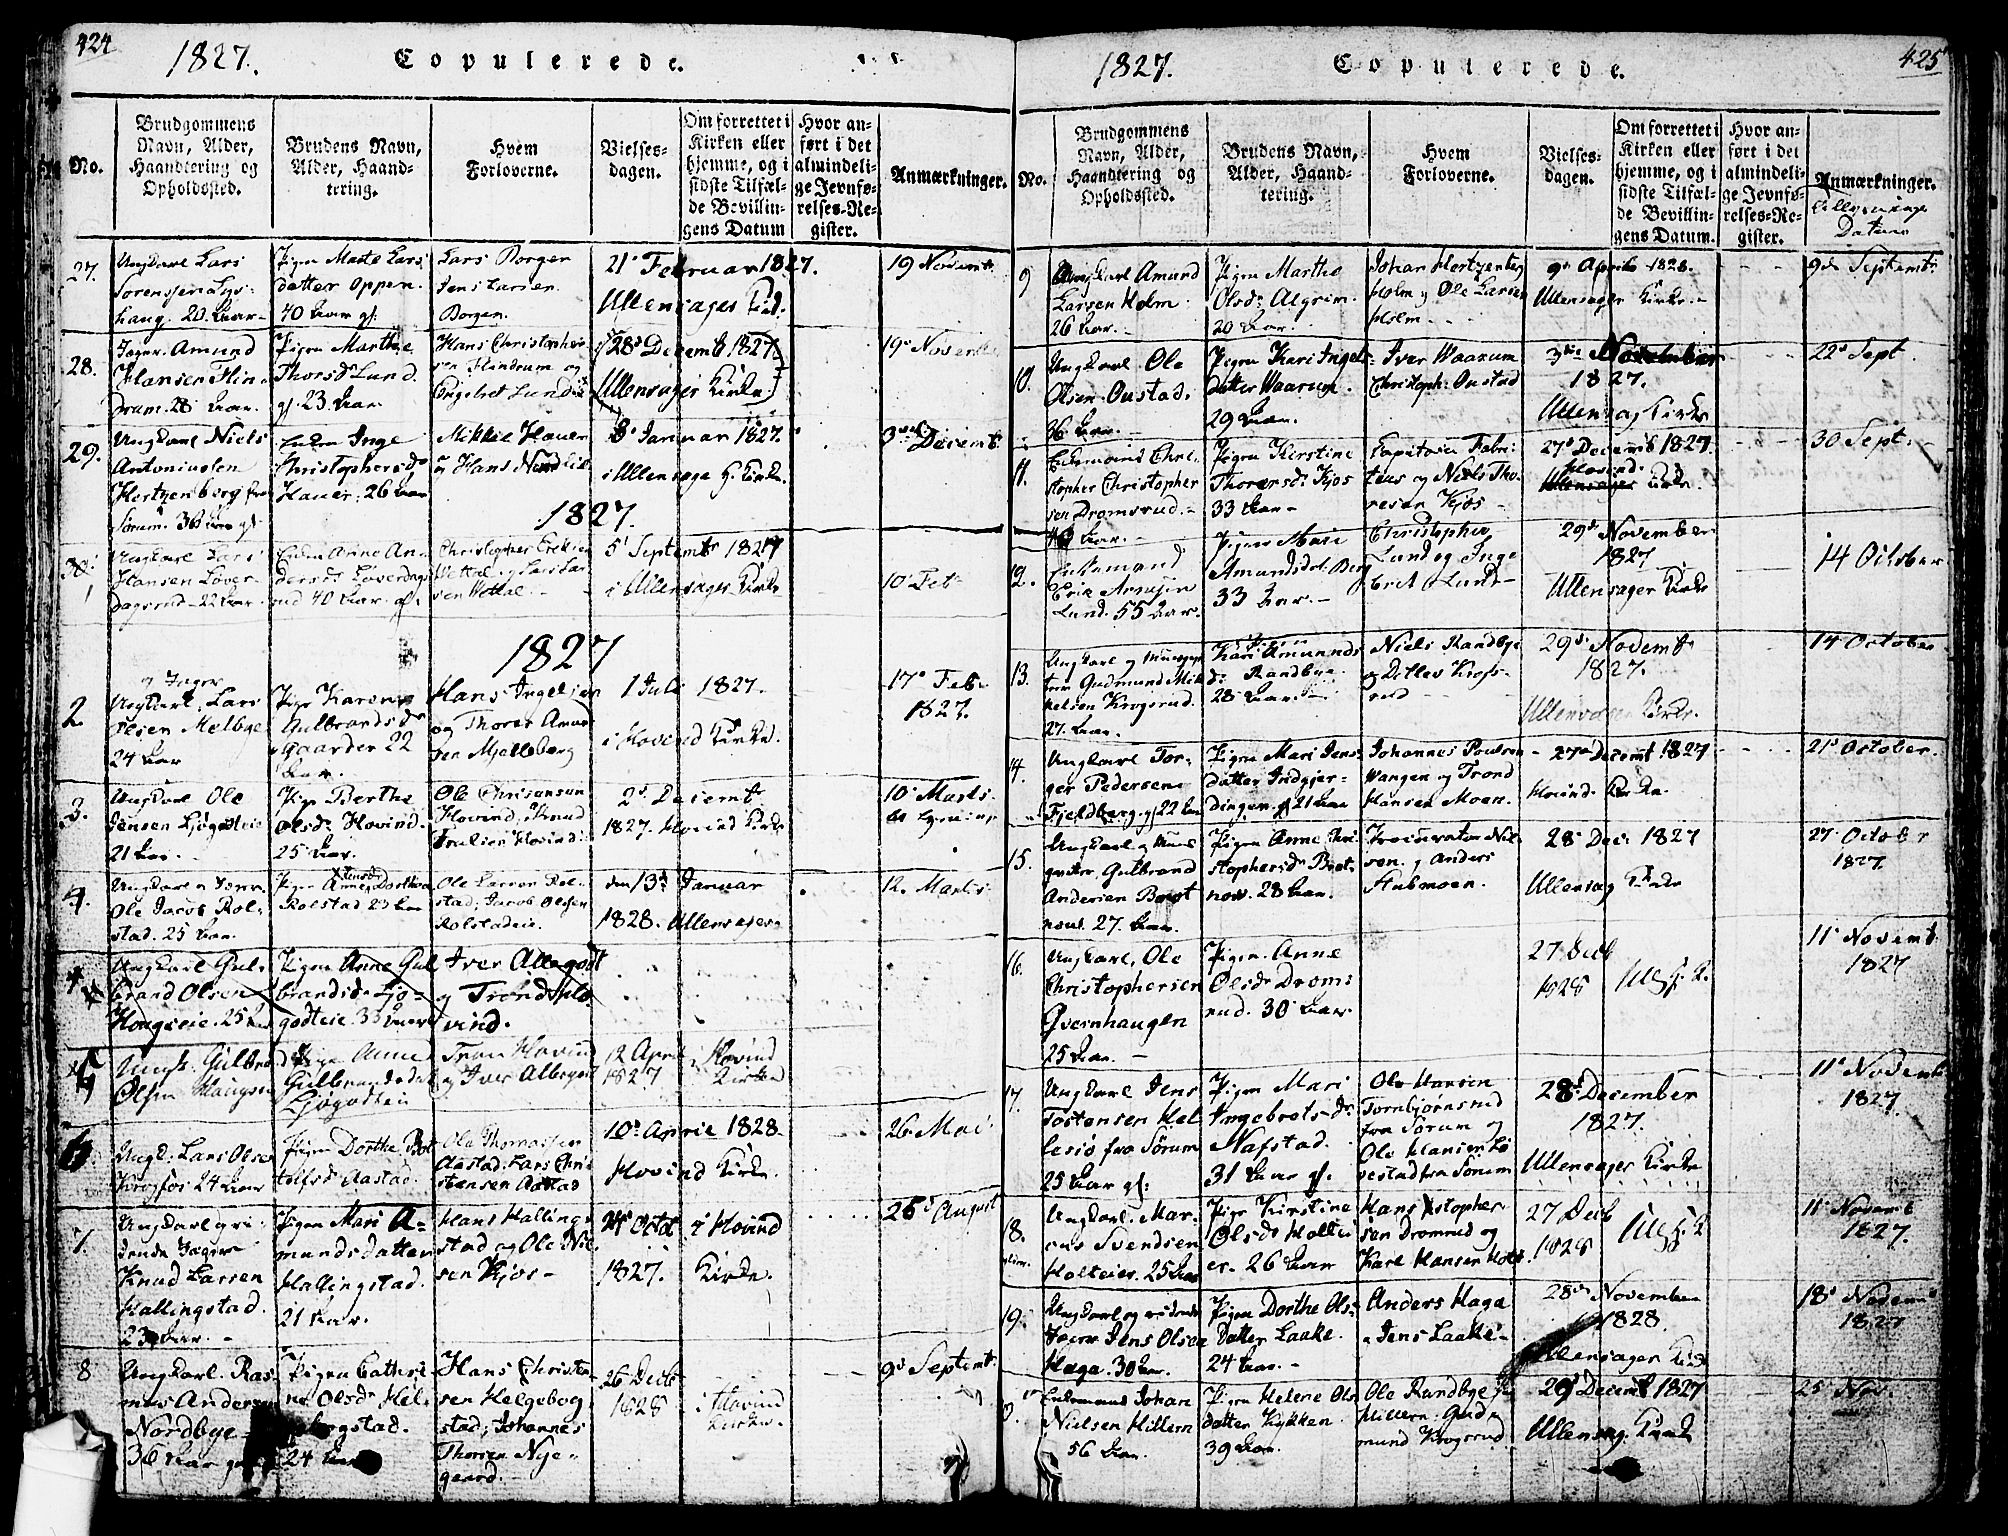 424
1827.
Copulerede.
No.
Brudgommens
Navn, Alder,
Haandtering og
Opholdssted.
Brudens Navn,
Alder, Haand-
tering.
Hvem
Forloverne.
Vielses-
dagen.
Om forrettet i
Kirken eller
hjemme, og i
sidste Tilfæl-
de Bevillin-
gens Datum
Hvor an-
ført i det
almindeli-
ge Jevnfø-
relses-Re-
gister.
Anmærkninger.
27.
Ungkarl Lars
Sorensen
haug. 20. Aar
Pigen Marte Lars
datter Oppen.
40 Aar gl.
Lars Borgen
Jens Larsen
Borgen.
21de Februar 1827.
Ullensager Kirk.
19 Novembr
28.
Jæger. Amund
Hansen Flin-
Drum. 28 Aar.
Pigen Marthe
Thorsdr Lund.
gl. 23 Aar.
Hans Christopher
sen Flindrum og
Engebret Lund
28d Decemb 1827.
Ullensager Kirke
19d Novembr
29.
Ungkarl Niels
Antoniusen
Hertzenberg fra
Sørum. 36 Aar gl.
Enken Inge
Christophersdr
Hauer. 26 Aar
Mikkel Hauer
og Hans Nordlie
8d Januar 1827.
i Ullensager H. Kirke.
3die Decembr
1827.
30.
Ungkarl Lars
Hansen Løver-
dagsrud 22 Aar.
Enken Anne An-
dersdr Løverdags
rud 40 Aar. gl.
Christopher Eriksen
Wettal og Lars Lar
sen Wettal.
5d Septembr 1827
i Ullensager Kirke
10de Feb
1827
2.
og Jæger
Ungkarl, Lars
Olsen Melbye
24 Aar
Pige Karen
Gulbrandsdr
gaarder 22
Aar.
Hans Ingelsen
og Thorer Amund
sen Mjelleberg
1 Juli 1827.
i Hovind Kirke.
17de Feb.
1827.
3.
Ungkarl Ole
Jensen Ljøgodteie
21 Aar.
Pige Berthe
Olsdr Hovind.
25 Aar.
Ole Christensen
Hovind, Knud
Truelsen Hovind.
2d Decemb
1827. Hovind Kirke
10d Marts.
4.
Ungkarl og Jæger
Ole Jacob Rol-
stad. 25 Aar.
Pigen Anne Dorthea
Rolstad 23 Aar
Ole Larsen Rol-
stad; Jacob Olsen
Rolstadeie.
den 13d Januar
1828. Ullensager
12. Marts.
4
Ungkarl Gul-
brand Olsen
Haugseie. 25 Aar
Pigen Anne Gul
brandsdr Ljø-
godteie. 33 Aar
Iver Allergodt
og Trond Ho
vind.
5
Ungk. Gulbrand
Olsen Haugseie
Pige Anne
Gulbrandsdat
Ljøgodteie
Tron Hovind
og Iver Allergodt
12 April
1827
i Hovind
Kirke
6.
Ungk. Lars Olsen
Krogfos 24 Aar
Pigen Dorthe Bot
tolfsdr Aastad.
Ole Thomassen
Aastad; Lars Chri
stensen Aastad
10d April 1828.
Hovind Kirke.
26 Mai.
7.
Ungkarl gri-
dende Jæger
Knud Larsen
Hallingstad.
23 Aar.
Pigen Mari A-
mundsdatter
Hallingstad.
21 Aar.
Hans Hallings
stad og Ole Niel
sen Kjos
24d Octob i Hovind
1827. Kirke.
26d August
8
Ungkarl. Ras-
mus Andersen
Nordbye
36 Aar gl
Pigen Cathri
ne Olsdr Hel-
gebogstad.
24 Aar
Hans Christen-
sen Helgebog
stad; Johannes
Thorsen Nye-
gaard.
26 Decb
1828
i Hovind
Kirke.
9d Septembr.
1827.
Copulerede.
425
No.
Brudgommens
Navn, Alder,
Haandtering og
Opholdssted.
Brudens Navn,
Alder, Haand-
tering.
Hvem
Forloverne.
Vielses-
dagen.
Om forrettet i
Kirken eller
hjemme, og i
sidste Tilfæl-
de Bevillin-
gens Datum.
Hvor an-
ført i det
almindeli-
ge Jevnfø-
relses-Re-
gister.
Anmærkninger.
Datum
9
Ungkarl Amund
Larsen Holm
26 Aar.
Pigen Marthe
Olsdr Algrim.
20 Aar.
Johan Hertzenberg
Holm og Ole Larsen
Holm
9d April 1828.
Ullensager Kirke.
9de Septembr
10.
Ungkarl Ole
Olsen Oustad.
36 Aar.
Pigen Kari Ingels-
datter Waarum.
29 Aar.
Iver Waarum
Christoph: Oustad
3die November
1827.
Ullensag Kirke
22d Sept
11.
Enkemand Chri-
stopher Christopher
sen Dromsrud.
43 Aar.
Pigen Kirstine
Thoresdr Kjos
33 Aar
Capitaine Fabri-
tius og Niels Tho-
resen Kjos
27d Decemb 1827.
Hovind
Ullensager Kirke.
30 Sept.
12.
Enkemand
Erik Arnesen
Lund. 55 Aar.
Pigen Mari
Amundsdr Berg
33 Aar.
Christopher
Lund og Inge
bret Lund
29d November
1827
Ullensager Kirke
14 October
13.
Ungkarl og
Gudmund Mik
kelsen Krogsrud.
27. Aar.
Kari Amunds
dr Randbye
28 Aar.
Niels Randbye
og Detlev Krogs
rud
29d Novembr
1827.
Ullensager Kirke.
14 October
14.
Ungkarl Tor-
ger Pedersen
Fjeldberg. gl 22 Aar
Pigen Mari Jens-
datter Indgjer-
dingen gl 21 Aar
Johannes Poulsen
Wangen og Trond
Hansen Moen.
27d Decemb 1827
Hovind Kirke.
21d October.
15.
Ungkarl og Hus
Gulbrand
Andersen Brot
nov. 27. Aar.
Pigen Anne Chri
stophersdr Brot-
nov. 28 Aar.
Procurator Niel-
sen og Anders
Stubmoen.
28d Dec. 1827
Ullensag Kirke
27 October
1827.
16.
Ungkarl, Ole
Christophersen
Qvernhaugen
25 Aar.
Pigen Anne
Olsdr Droms
rud. 30 Aar.
27 Decb
1828
Ulls. K.
11d Novemb.
1827
17.
Ungkarl Jens
Tostensen Hel
lesiø fra Sørum
25 Aar gl.
Pigen Mari
Ingebretsdr
Nafstad.
31 Aar gl.
Ole Hansen
Tornbjørnsrud
fra Sørum og
Ole Hansen Lø
vestad fra Sørum
28d December
1827.
Ullensager Kirke
11d Novemb.
1827.
18.
Ungkarl. Mar-
cus Svendsen
Holteier. 25 Aar
Pige Kirstine
Olsdr Holtei
er. 26 Aar
Hans Xstopher
sen Dromrud og
Karl Hansen Holt.
27 Decb
1828
Ulls. K
11d Novemb
1827.
19.
Ungkarl og ridende
Jæger Jens Olsen
Haga. 30 Aar.
Pigen Dorthe Ols-
datter Laake.
24 Aar.
Anders Haga
Jens Laake
28de November
1828
Ullensager Kirke
18d Novemb
1827
Enkemand Johan
Nielsen Hillern
56 Aar.
Pigen Helene Ols
datter Kykken.
39 Aar.
Ole Randbye
Hillern: Gud
mund Krogsrud
29d Decemb 1827
Ullensag. Kirke
25d Nov.